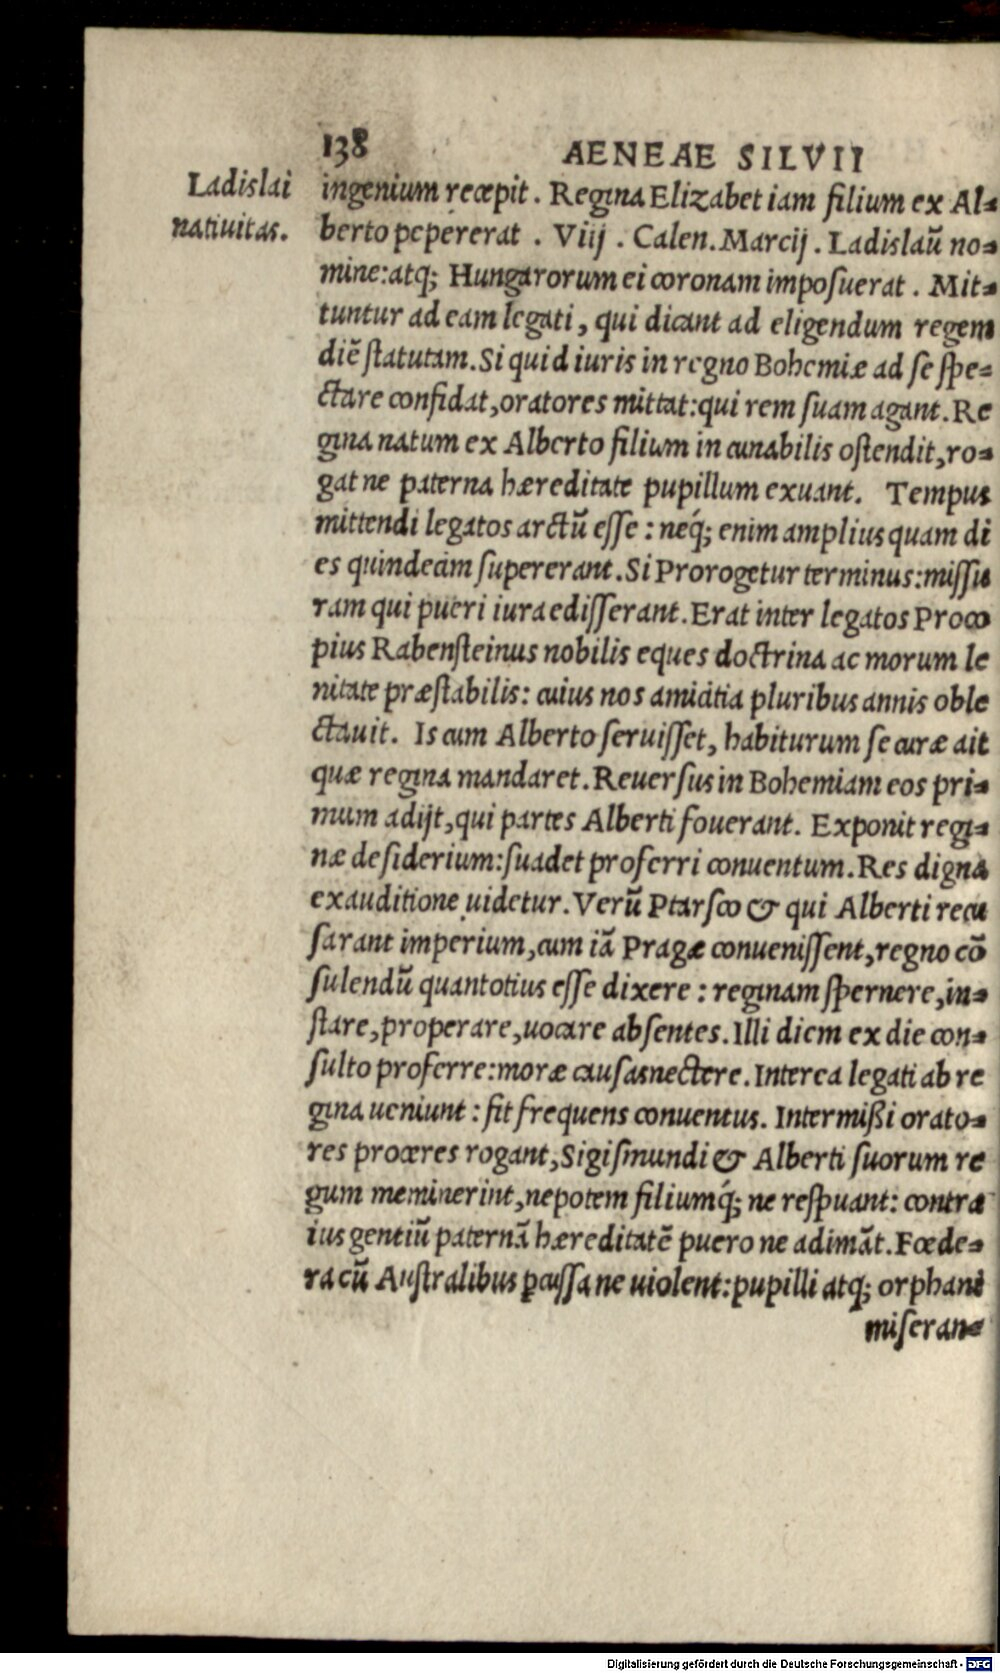 138 AENEAE SILVII
Ladislai
natiuitas.
ingenium recepit. Regina Elizabet iam filium ex Al-
berto pepererat. Viij. Calen. Marcij. Ladislaũ no-
mine: atq; Hungarorum ei coronam imposuerat. Mit-
tuntur ad eam legati, qui dicant ad eligendum regem
diẽ statutam. Si quid iuris in regno Bohemiæ ad se spe-
ctare confidat, oratores mittat: qui rem suam agant. Re
gina natum ex Alberto filium in cunabilis ostendit, ro-
gat ne paterna hæreditate pupillum exuant. Tempus
mittendi legatos arctũ esse: neq́; enim amplius quam di
es quindecim supererant. Si Prorogetur terminus: missu
ram qui pueri iura edisserant. Erat inter legatos Proco
pius Rabensteinus nobilis eques doctrina ac morum le
nitate præstabilis: cuius nos amicitia pluribus annis oble
ctauit. Is cum Alberto seruisset, habiturum se curæ ait
quæ regina mandaret. Reuersus in Bohemiam eos pri-
mum adijt, qui partes Alberti fouerant. Exponit regi-
næ desiderium: suadet proferri conuentum. Res digna
exauditione uidetur. Verũ Ptarsco & qui Alberti recu
sarant imperium, cum iã Pragæ conuenissent, regno cõ
sulendũ quantotius esse dixere: reginam spernere, in-
stare, properare, uocare absentes. Illi diem ex die con-
sulto proferre: moræ causas nectere. Interea legati ab re
gina ueniunt: fit frequens conuentus. Intermißi orato-
res proceres rogant, Sigismundi & Alberti suorum re
gum meminerint, nepotem filiumq́; ne respuant: contra
ius gentiũ paternã hæreditatẽ puero ne adimãt. Fœde-
ra cũ Australibus ꝑcussa ne uiolent: pupilli atq; orphani
miseran-
Digitalisierung gefördert durch die Deutsche Forschungsgemeinschaft - DFG